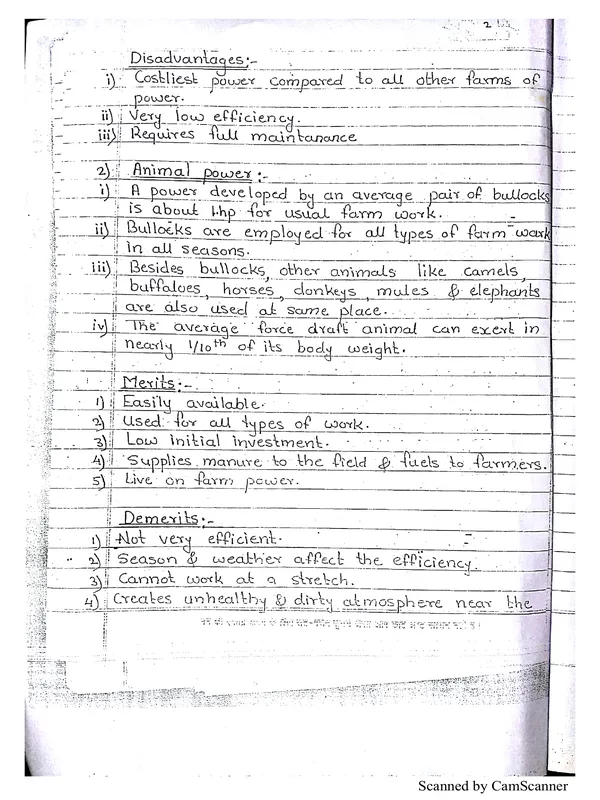 2
Disadvantages:-
i) Costliest power compared to all other farms of
power.
ii) Very low efficiency.
iii) Requires full maintanance
2) Animal power:-
i) A power developed by an average pair of bullocks
is about 1hp for usual farm work.
ii) Bullocks are employed for all types of farm work
in all seasons.
iii) Besides bullocks, other animals like camels,
buffaloes, horses, donkeys, mules & elephants
are also used at same place.
iv) The average force draft animal can exert in
nearly 1/10th of its body weight.
Merits:-
1) Easily available.
2) Used for all types of work.
3) Low initial investment.
4) Supplies manure to the field & fuels to farmers.
5) Live on farm power.
Demerits:-
1) Not very efficient.
2) Season & weather affect the efficiency.
3) Cannot work at a stretch.
4) Creates unhealthy & dirty atmosphere near the
Scanned by CamScanner